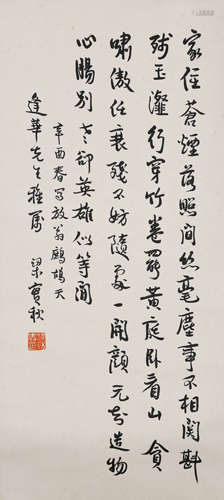 家住蒼煙落照間絲毫塵事不相關斟
殘玉瀣行穿竹卷罷黃庭臥看山貪
嘯傲任衰殘不妨隨處一開顏元知造物
心腸別老卻英雄似等間
辛酉春寫放翁鷓鴣天
逢華先生雅屬 梁實秋